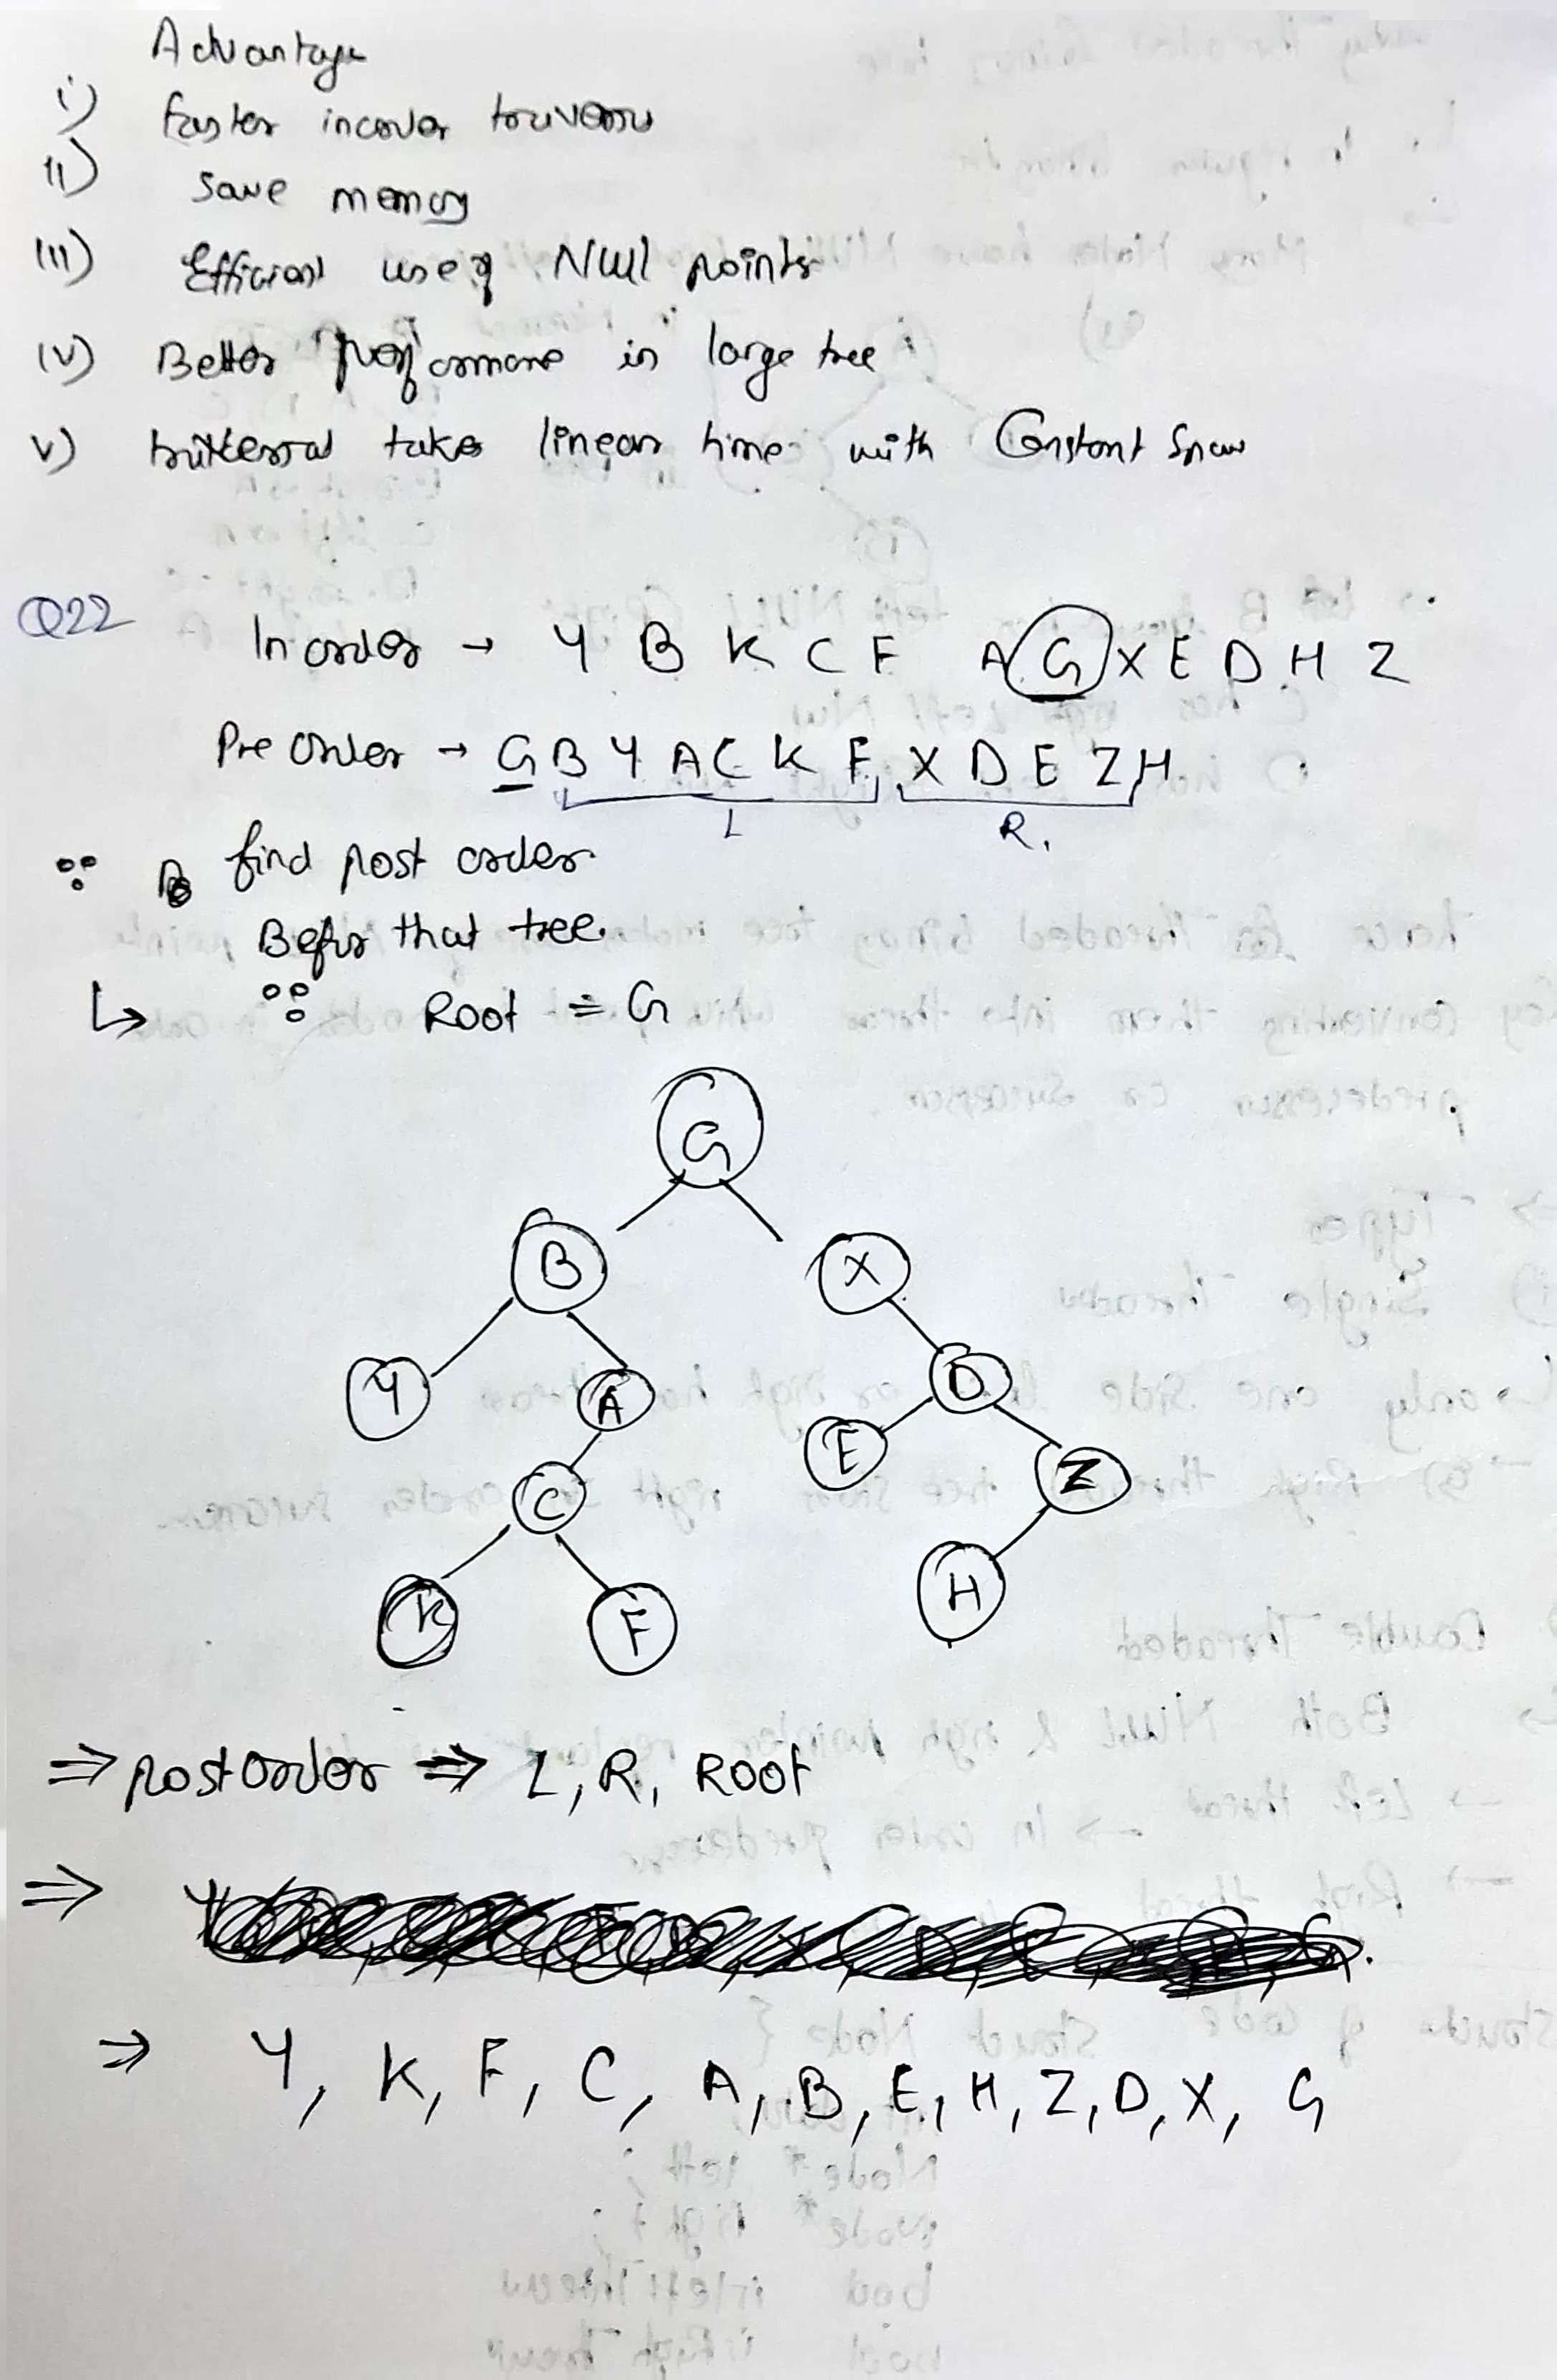 Advantage
i) faster inorder traversa
ii) save memory
iii) Efficient use of NUll points
iv) Better Performane in large tree
v) takes linear time with Constant Spac
Q22
Inorder → Y B K C F A G X E D H Z
Pre Order → G B Y A C K F X D E Z H
L R.
∵ find post order
Befor that tree.
↳ ∵ Root = G
G
B X
Y A D
E
C Z
K F H
⇒ postorder ⇒ L, R, Root
⇒
⇒ Y, K, F, C, A, B, E, H, Z, D, X, G